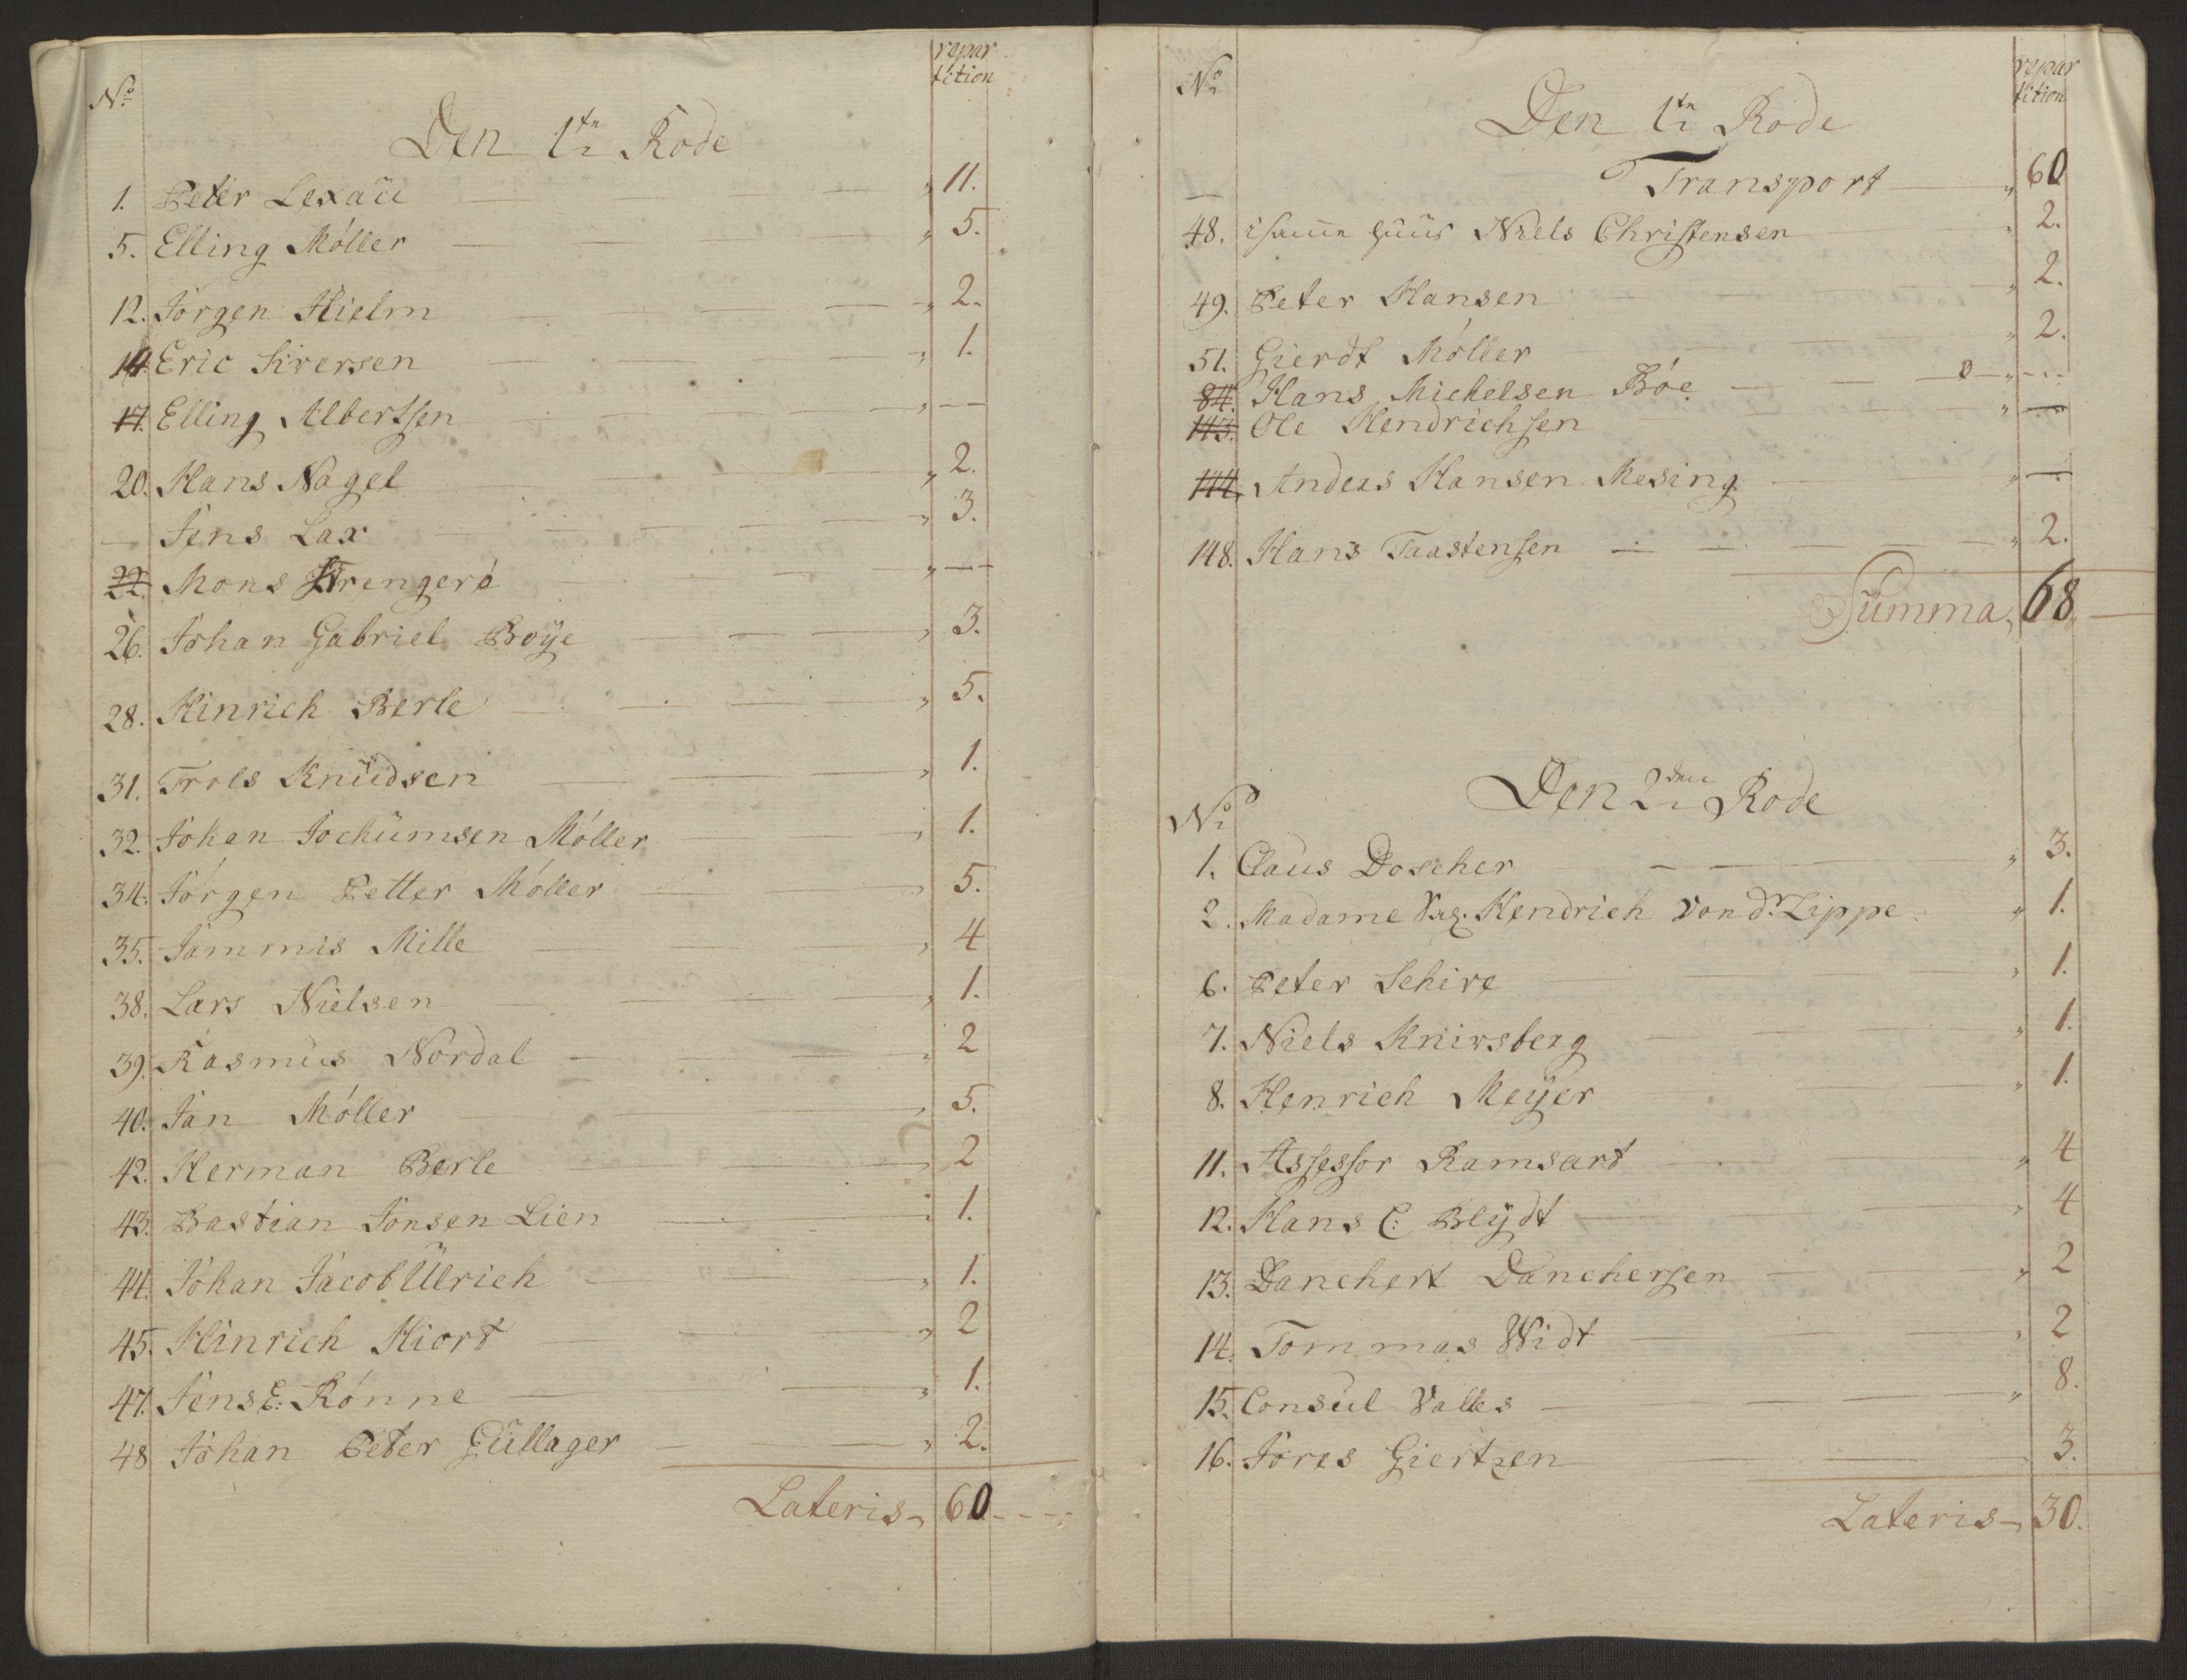 No repar
tition
Den 1te Rode
1. Peter Lexau „ 11.
5. Elling Möller „ 5.
12. Jörgen Hielm „ 2.
14 Eric Siversen „ 1.
17. Elling Albertsen „ —
20. Hans Nagel „ 2.
— Jens Lax „ 3.
22. Mons Strengerö „ —
26. Johan Gabriel Boÿe „ 3.
28. Hinrich Berle „ 5.
31. Trols Knüdsen „ 1.
32. Johan Jochümsen Möller „ 1.
34. Jörgen Petter Möller „ 5.
35. Jammis Mille „ 4
38. Lars Nielsen „ 1.
39. Rasmus Nordal „ 2
40. Jan Möller „ 5.
42. Herman Berle „ 2
43. Bastian Jonsen Lien „ 1.
44. Johan Jacob Ülrich „ 1.
45. Hinrich Hiort „ 2
47. Jens E: Rönne „ 1.
48 Johan Peter Güllager „ 2.
Lateris „ 60
No repar
tition
Den 1te Rode
Transport „ 60
48. i samme Huus Niels Christensen „ 2.
49. Peter Hansen „ 2.
51. Gierdt Möller „ 2.
84. Hans Michelsen Böe 0 „ —
143. Ole Hendrichsen „ —
144. Anders Hansen Mesing „ —
148. Hans Taastensen „ 2.
Summa „ 68
Den 2den Rode
No
1. Claus Doscher „ 3.
2. Madame Hendrich von dr Lippe „ 1.
6. Peter Schive „ 1.
7. Niels Knivsberg „ 1.
8. Henrich Meÿer „ 1.
11. Assessor Ramsart „ 4
12. Hans C: Blÿdt „ 4
13. Danchert Danchersen „ 2
14. Tommas Widt „ 2
15. Consul Valles „ 8.
16. Jöres Giertzen 3.
Lateris „ 30.